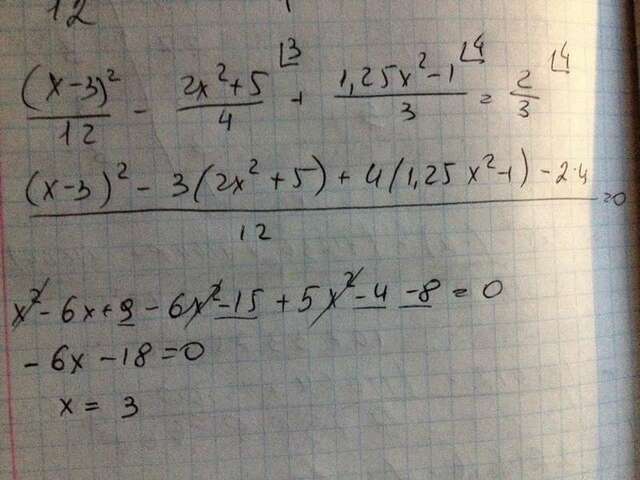 12
(x-3)²/12 - (2x²+5)/4 ⌊3 + (1,25x²-1)/3 ⌊4 = 2/3 ⌊4
((x-3)² - 3(2x²+5) + 4(1,25x²-1) - 2·4)/12 = 0
x² - 6x + 9 - 6x² - 15 + 5x² - 4 - 8 = 0
- 6x - 18 = 0
x = 3